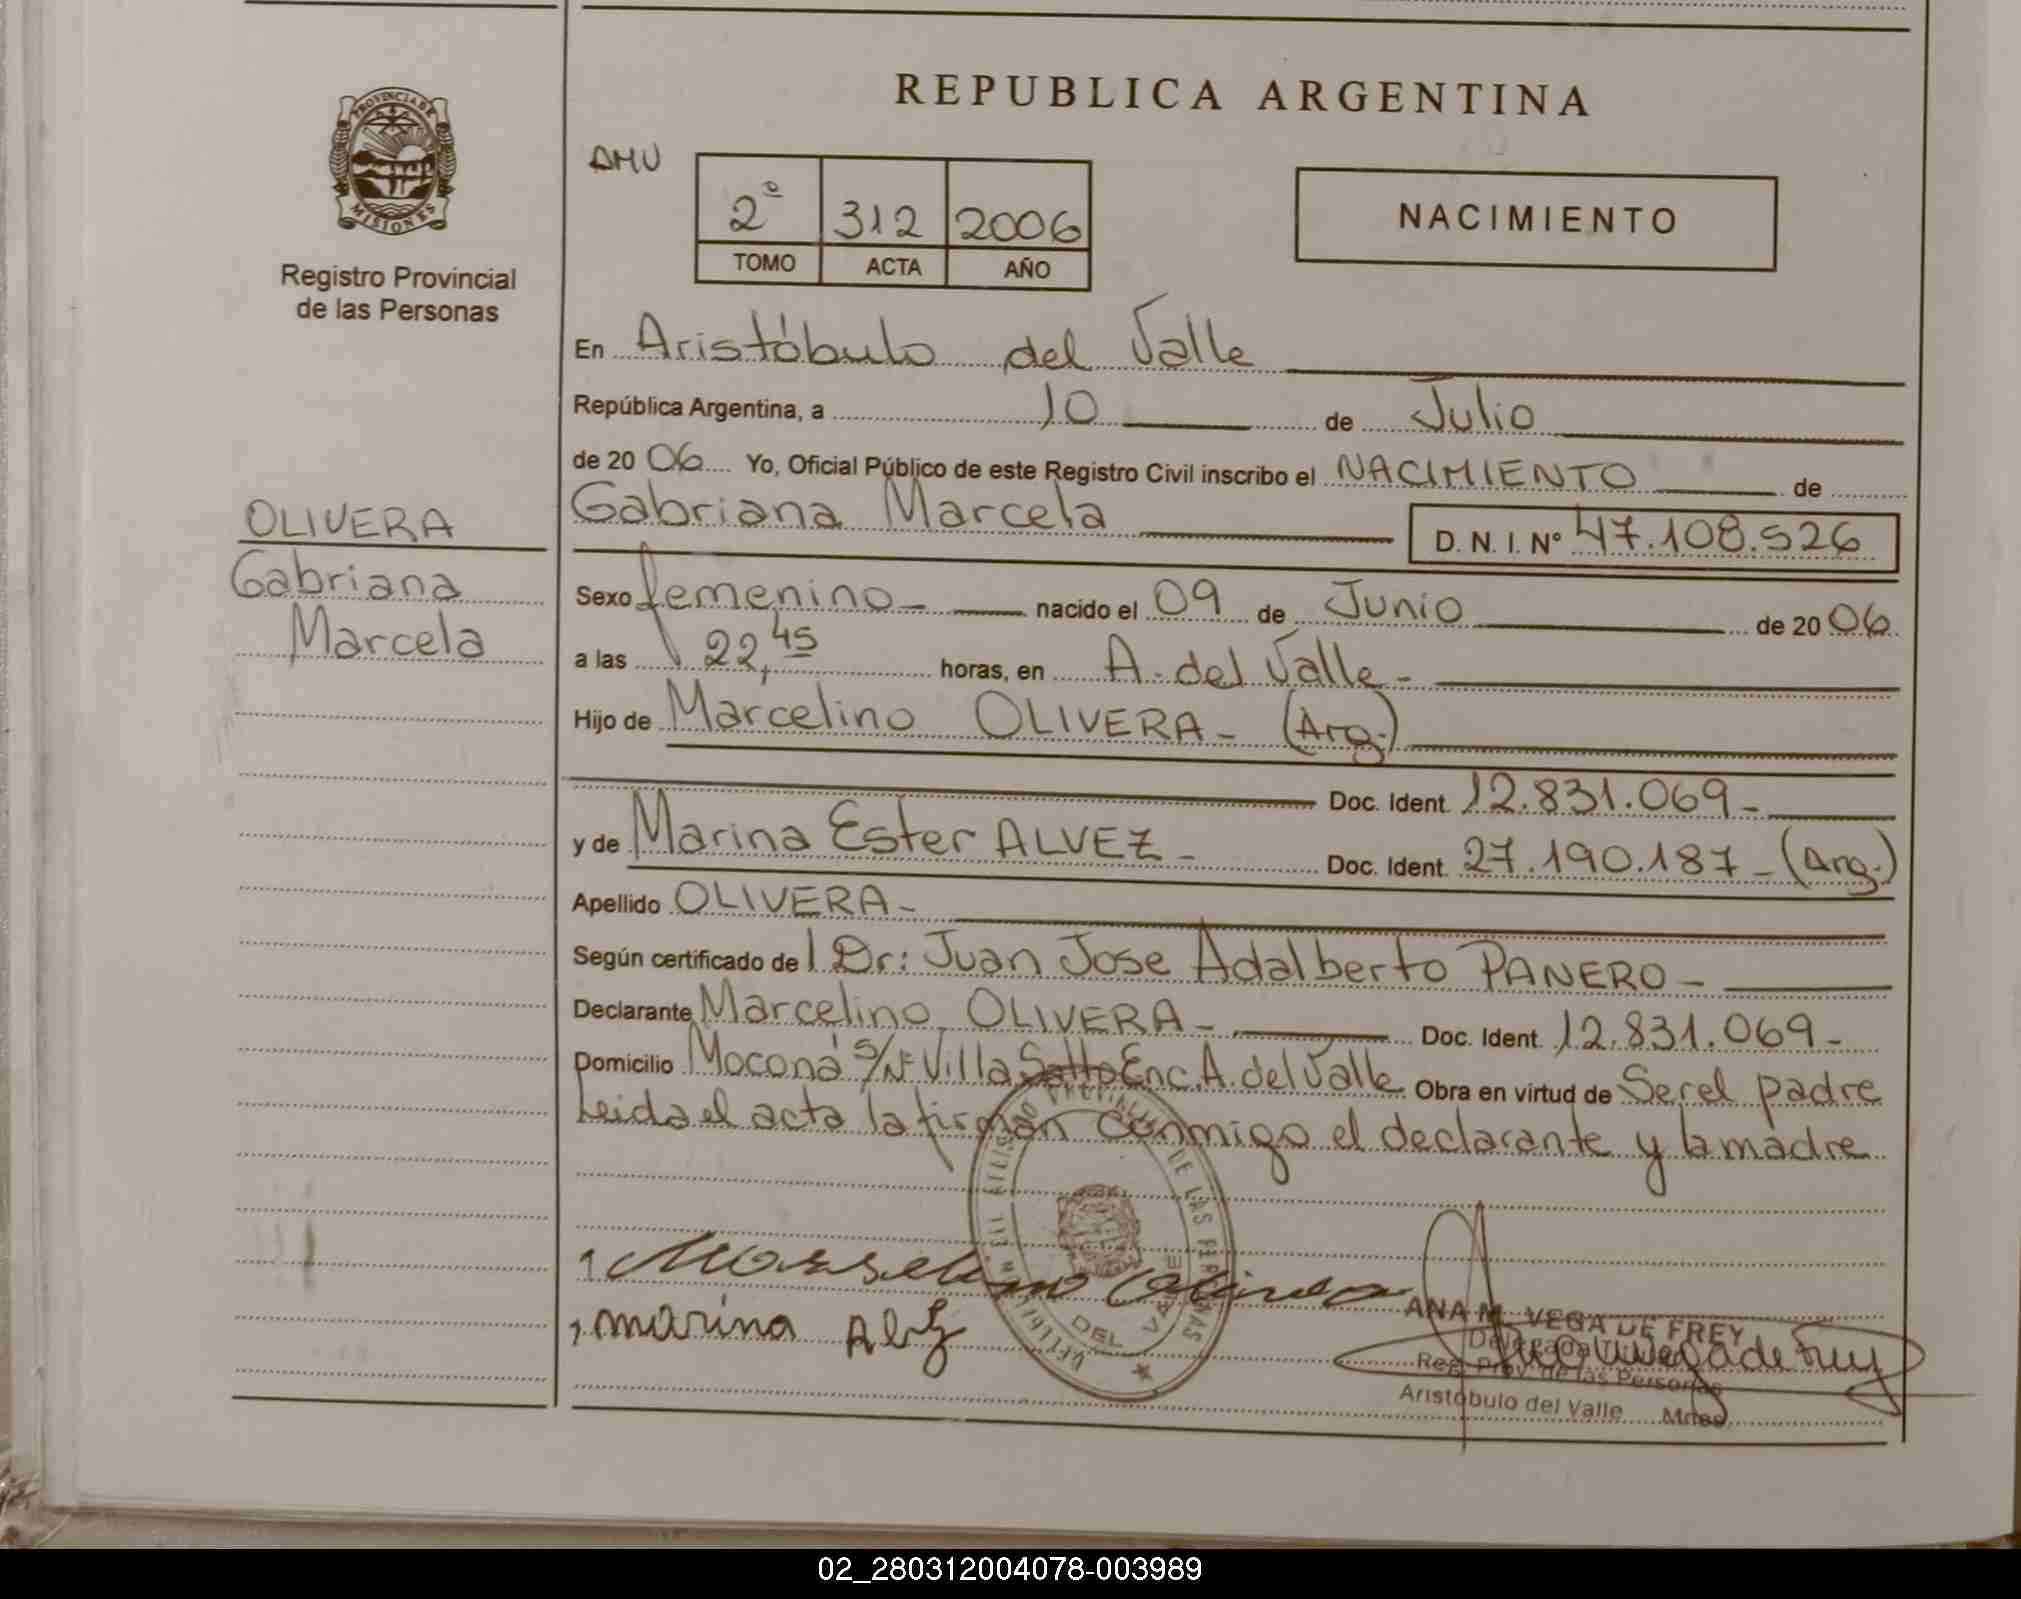 REPUBLICA ARGENTINA
PROVINCIA DE
MISIONES
Registro Provincial
de las Personas
AMU
2º 312 2006
TOMO ACTA AÑO
NACIMIENTO
En Aristóbulo del Valle
República Argentina, a 10 de Julio
de 20 06 Yo, Oficial Público de este Registro Civil inscribo el NACIMIENTO de
Gabriana Marcela D. N. I. Nº 47.108.526
OLIVERA
Gabriana
Marcela
Sexo femenino nacido el 09 de Junio de 20 06
a las 22,45 horas, en A. del Valle -
Hijo de Marcelino OLIVERA - (Arg.)
Doc. Ident. 12.831.069 -
y de Marina Ester ALVEZ - Doc. Ident. 27.190.187 - (Arg.)
Apellido OLIVERA -
Según certificado de l Dr: Juan Jose Adalberto PANERO -
Declarante Marcelino OLIVERA - Doc. Ident. 12.831.069 -
Domicilio Moconá S/Nº Villa Salto Enc. A. del Valle Obra en virtud de Ser el padre
Leida el acta la firman conmigo el declarante y la madre
DE LAS PERSONAS
DEL VALLE
marina
ANA M. VEGA DE FREY
Delegada Titular
Reg. Prov. de las Personas
Aristóbulo del Valle Mnes.
02_280312004078-003989